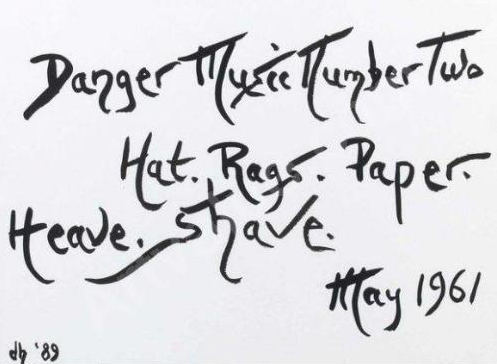 Danger Music Number Two
Hat. Rags. Paper.
Heave. Shave.
May 1961
dh '89